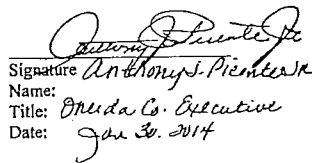 Anthony J Picente Jr
Signature Anthony J. Picente Jr
Name:
Title: Oneida Co. Executive
Date: Jan 30. 2014